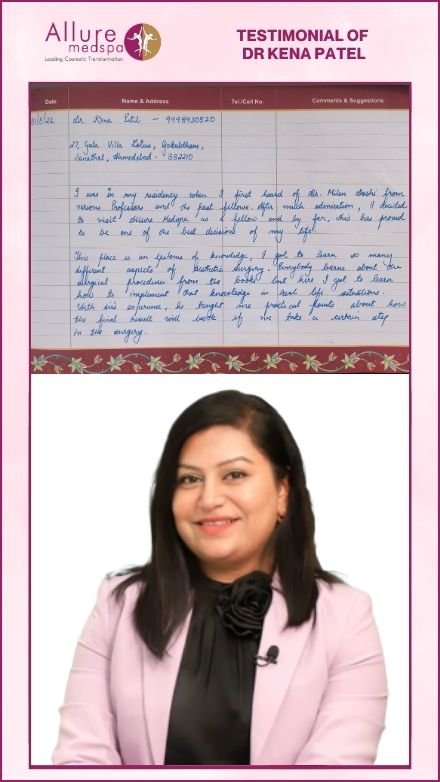 Allure
medspa
Leading Cosmetic Transformation
TESTIMONIAL OF
DR KENA PATEL
Date Name & Address Tel./Cell No. Comments & Suggestions
Dr. Kena Patel - 9998930520
27, Gala Villa Lotus, Gokuldham,
Sanathal, Ahmedabad - 382210
I was in my residency when I first heard of Dr. Milan Doshi from
various Professors and the past fellows. After much admiration, I decided
to visit Allure Medspa as a fellow and by far, this has proved
to be one of the best decisions of my life.
This place is an epitome of knowledge, I got to learn so many
different aspects of Aesthetic Surgery. Everybody learns about the
surgical procedures from the books but here I got to learn
how to implement that knowledge in real life situations.
With sir's experience, he taught me practical points about how
the final result will look if we take a certain step
in the surgery.